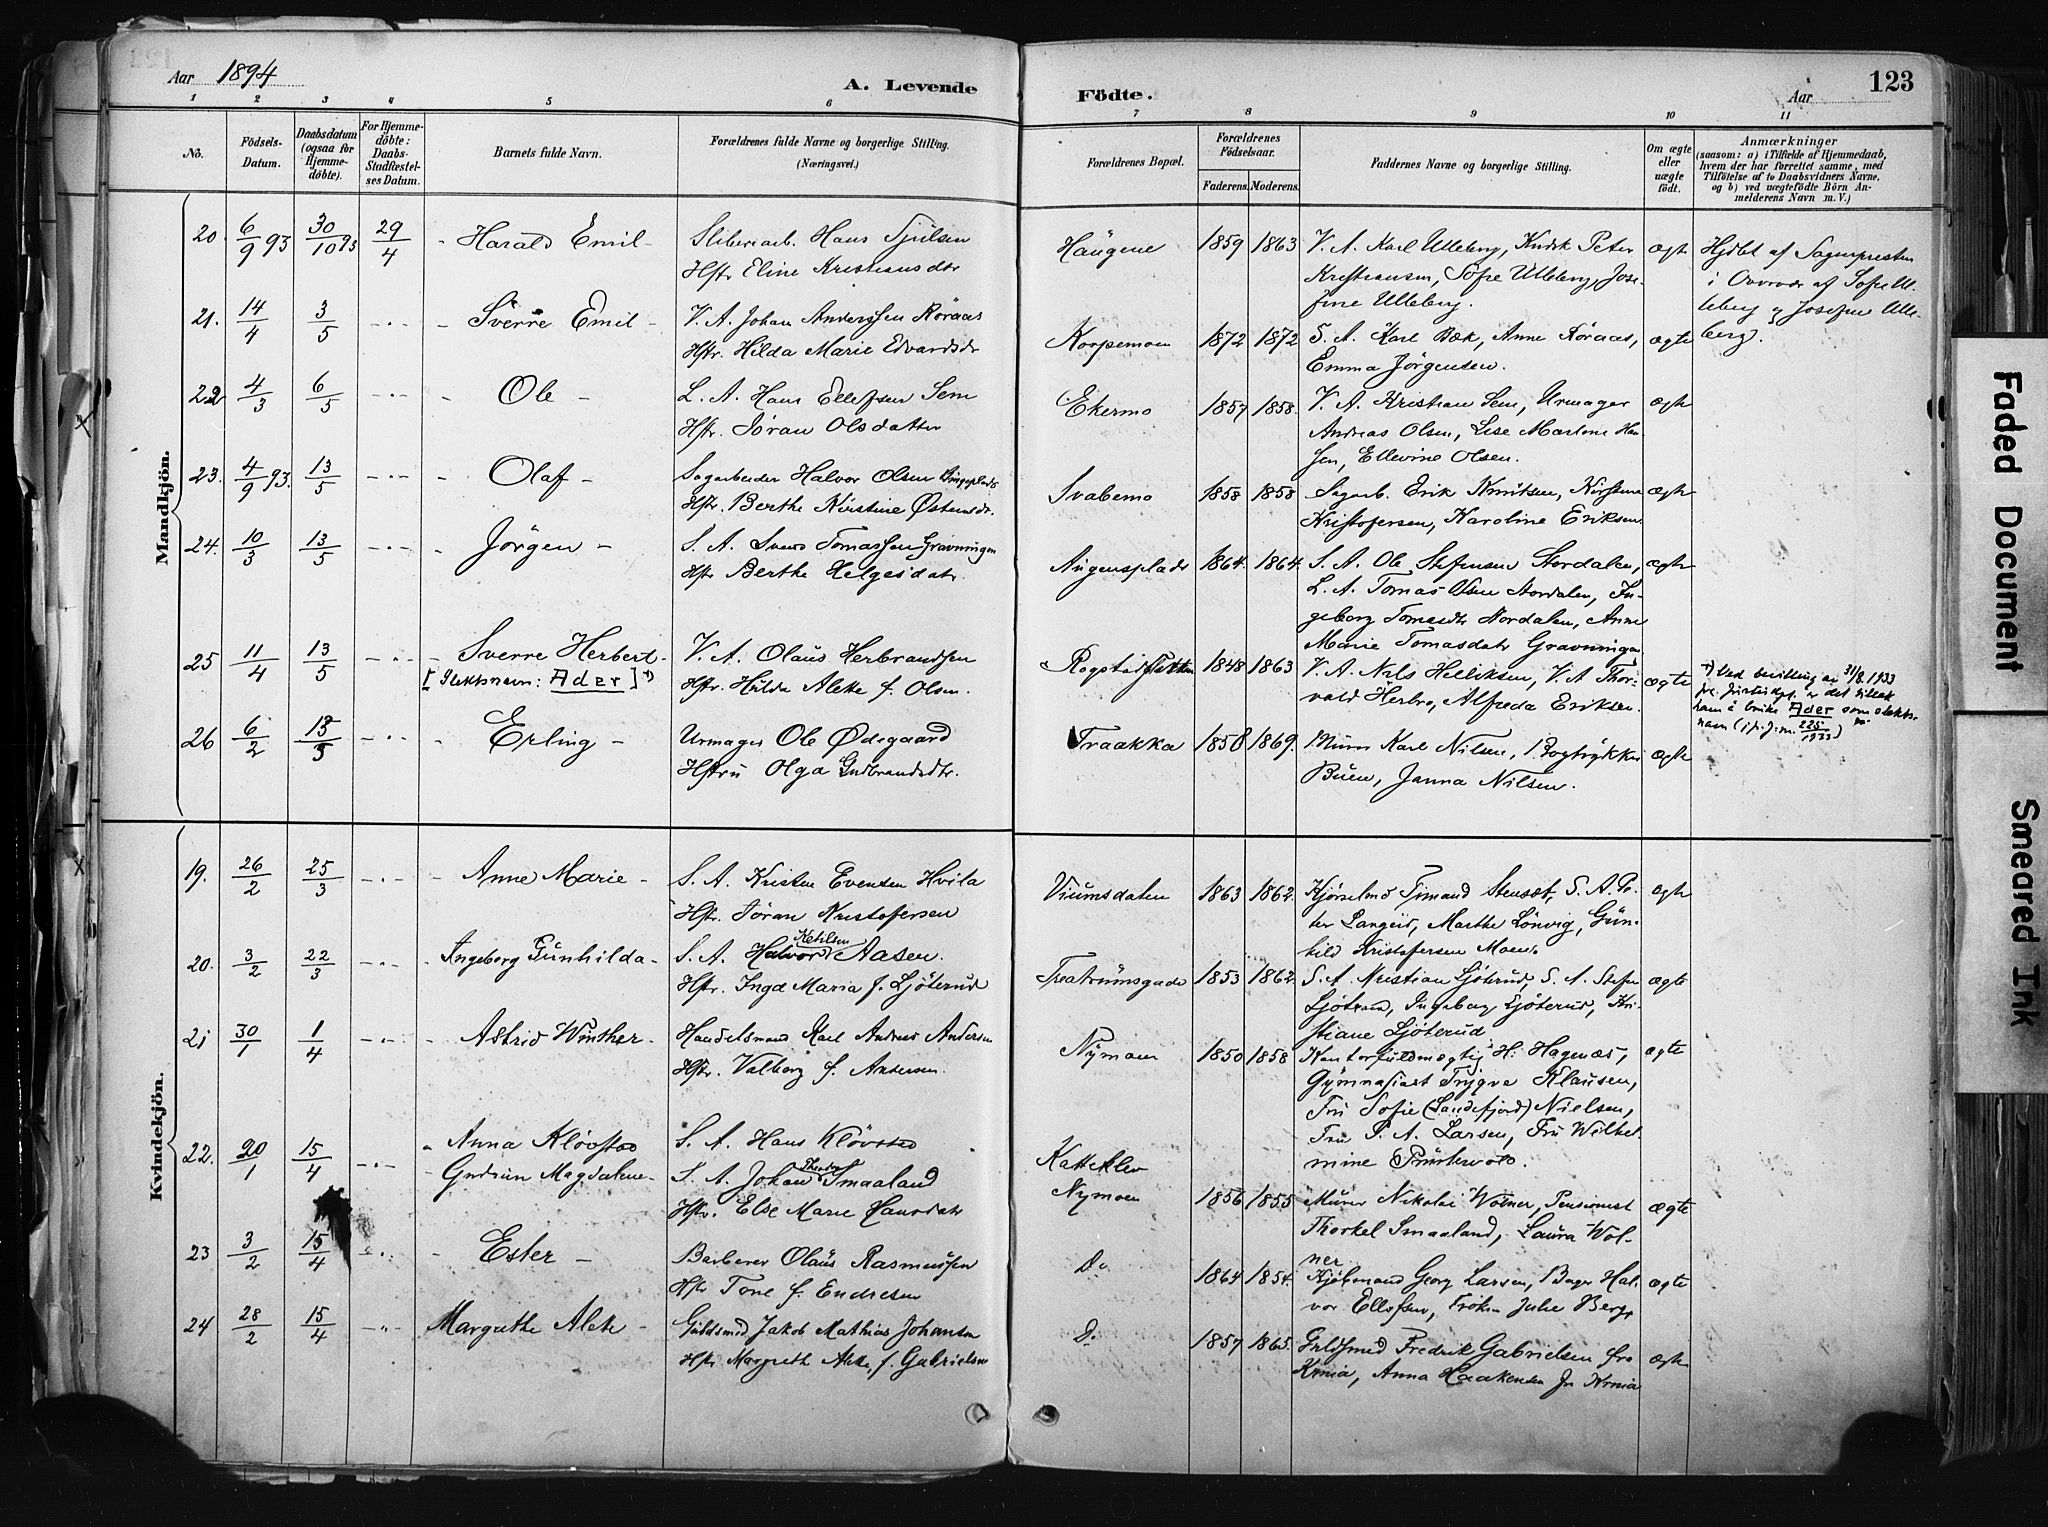 Aar 1894
A. Levende
Födte.
Aar
123
1 2 3 4 5 6 7 8 9 10 11
No.
Födsels-
Datum.
Daabsdatum
(ogsaa for
Hjemme-
döbte).
For Hjemme-
döbte:
Daabs-
Stadfæstel-
ses Datum.
Barnets fulde Navn.
Forældrenes fulde Navne og borgerlige Stilling.
(Næringsvei.)
Forældrenes Bopæl.
Forældrenes
Födselsaar.
Faderens. Moderens.
Faddernes Navne og borgerlige Stilling.
Om ægte
eller
uægte
födt.
Anmærkninger
(saasom: a) i Tilfælde af Hjemmedaab,
hvem der har forrettet samme, med
Tilföielse af to Daabsvidners Navne,
og b) ved uægtefödte Börn An-
melderens Navn m. V.)
Mandkjön.
20. 6/9 93 30/10 93 29/4 - Harald Emil - Sliberiarb. Hans Tjulsen
Hstr Eline Kristiansdtr
Haugene 1859 1863 V. A. Karl Ulleberg, Kudsk Peter
Kristiansen, Sofie Ulleberg, Jose-
fine Ulleberg. ægte
Hjdbt af Sogneprestens
i Overvær af Sofie Ul-
leberg og Josefine Ulle-
berg.
21. 14/4 3/5 - Sverre Emil - V. A. Johan Anderssen Röraas
Hstr. Hilda Marie Edvardsdr
Korpemoen 1872 1872 S. A. Karl Bæk, Anne Röraas,
Emma Jörgensen. ægte
22 4/3 6/5 - Ole - L. A. Hans Ellefsen Sem
Hstr. Jöran Olsdatter
Ekermo 1857 1858. V. A. Kristian Sem, Urmager
Andreas Olsen, Lise Marlene Han-
sen, Ellevine Olsen. ægte
23. 4/9 93. 13/5 - Olaf - Sagarbeider Halvor Olsen
Hstr. Berthe Kirstine Østensdr.
Svabemo 1858 1858 Sagarb. Erik Knutsen, Kirstine
Kristofersen, Karoline Eriksen ægte
24. 10/3 13/5 - Jörgen - S. A. Svend Tomassen Gravningen
Hstr Berthe Helgesdatr.
1864. 1864. S. A. Ole Stefensen Stordalen,
L. A. Tomas Olsen Stordalen, In-
geborg Tomasdtr Stordalen, Anne
Marie Tomasdatr Gravningen ægte
25 11/4 13/5 - Sverre Herbert -
[Slektsnavn: Ader] *)
V. A. Olaus Herbrandsen
Hstr. Hulda Aleke f. Olsen.
1848 1863 V. A. Nils Helliksen, V. A Thor-
vald Herbro, Alfreda Eriksen. ægte
*) Ved bevilling av 31/8. 1933
fra Justisdpt. er det tillatt
ham å bruke Ader som slekts-
navn (j.p.j.nr. 225/1933)
26 6/2 13/5 - Erling - Urmager Ole Ødegaard
Hstru Olga Gudbrandsdtr.
Traakka 1858 1869. Murer Karl Nilsen, Bogtrykker
Buen, Janna Nilsen. ægte
Kvindekjön.
19. 26/2 25/3 - Anne Marie - S. A. Kristen Evensen Hvila
Hstr. Jöran Kristofersen
Viumsdalen 1863 1862. Kjörselmd Timand Stensæt, S. A. Pe-
ter Langeid, Marthe Lönvig, Gun-
hild Kristofersen Moen. ægte
20. 3/2 22/3 - Ingeborg Gunhilda - S. A. Halvor Ketilsen Aasen.
Hstr. Inga Maria f. Ljöterud
Teatrumsgade 1853 1862. S. A. Kristian Ljöterud, S. A. Stefen
Ljöterud, Ingeborg Ljöterud, Kri-
stiane Ljöterud ægte
21 30/1 1/4 - Astrid Winther - Handelsmand Karl Andreas Andersen
Hstr. Valborg f. Andersen.
Nymoen 1850 1858 Kontorfuldmægtig H. Hagenæs,
Gymnasiast Trygve Klausen,
Fru Sofie (Sandefjord) Nielsen,
Fru P. A. Larsen, Fru Wilhel-
mine ægte
22. 20/1 15/4 - Anna Klövstad S. A. Hans Klövstad
Gudrun Magdalene - S. A. Johan Theodor Smaaland
Hstr. Else Marie Hansdatr
Katteklev
Nymoen 1856 1855 Murer Nikolai Wölner, Pensionist
Thorkel Smaaland, Laura Wöl-
ner ægte
23 3/2 15/4 - Ester - Barberer Olaus Rasmussen
Hstr Tone f. Endresen
Do 1864 1854. Kjöbmand Georg Larsen, Bager Hal-
vor Ellefsen, Fröken Julie Berg, ægte
24 28/2 15/4 - Margrethe Aleke - Guldsmed Jakob Mathias Johansen
Hstr Margreth Aleke f. Gabrielsen
Do 1857 1865. Guldsmed Fredrik Gabrielsen fra
Krnia, Anna Haakensen fr Krnia ægte
Faded Document
Smeared Ink